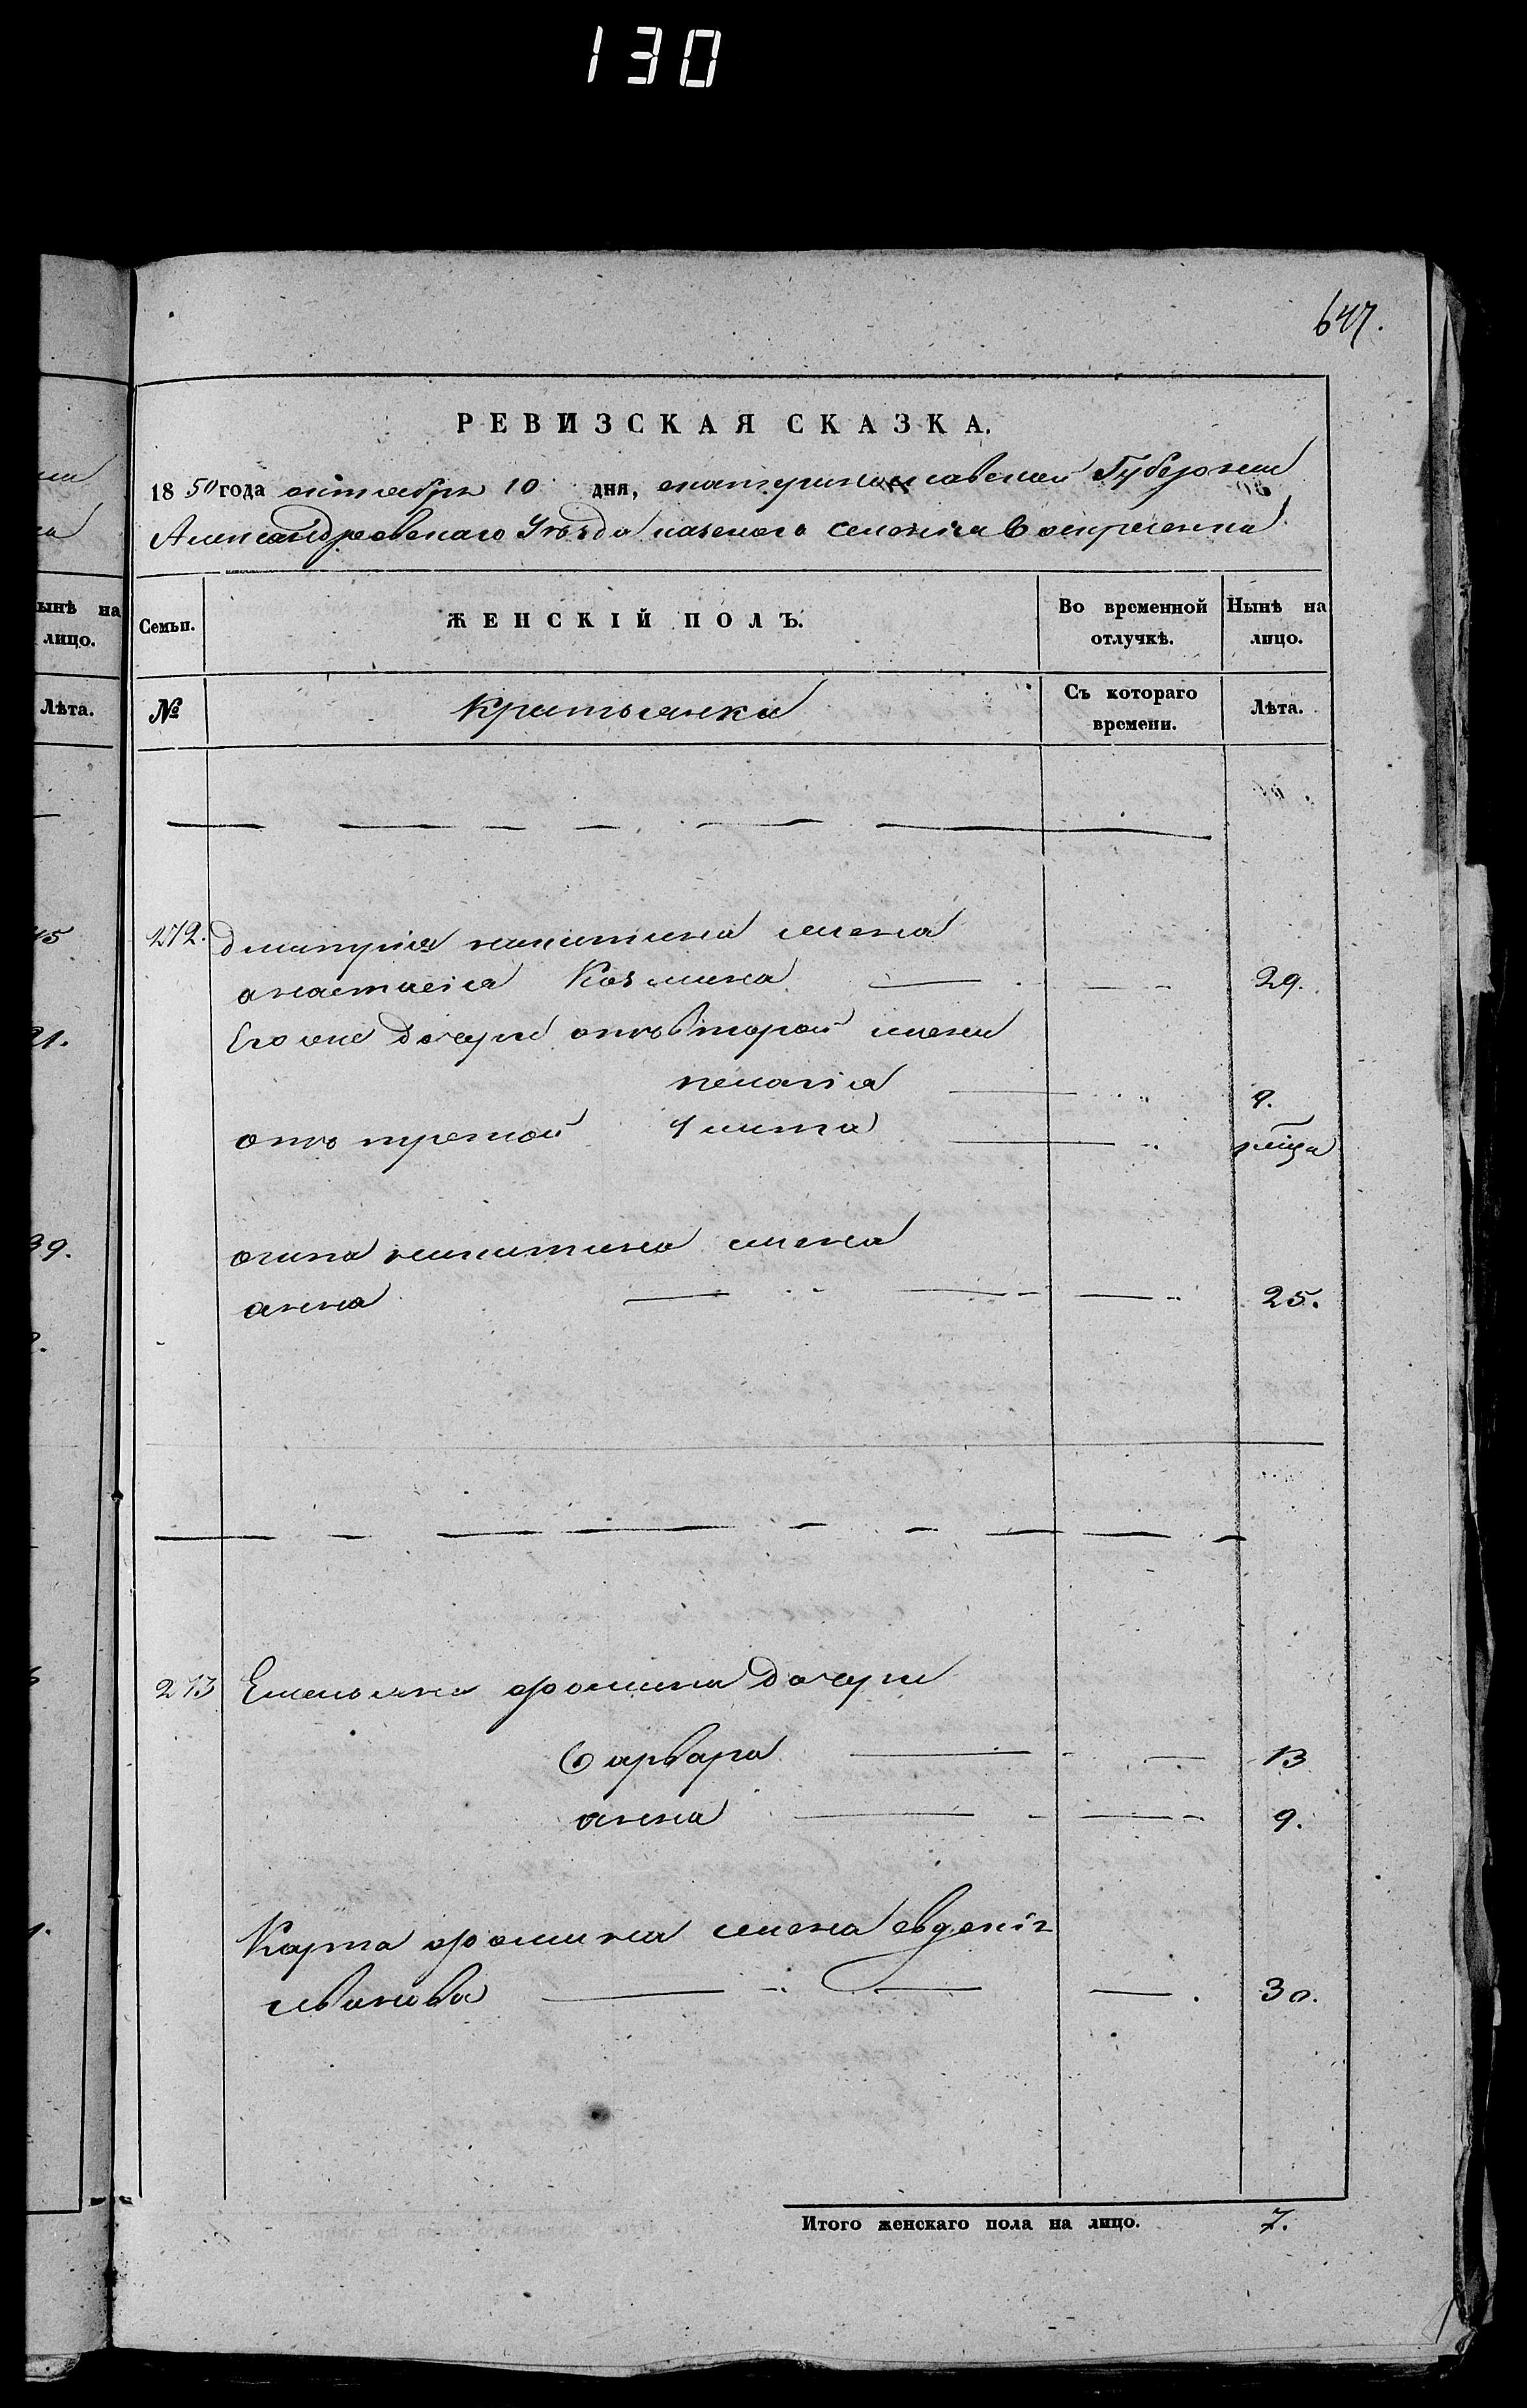 130
647.
РЕВИЗСКАЯ СКАЗКА.
1850 года октября 10 дня, екатеринославской Губернии
Александровскаго Уѣзда казеного селения Воскресенка
Семьи. ЖЕНСКІЙ ПОЛЪ. Во временной отлучкѣ. Нынѣ на лицо.
№ Крстьянка Съ котораго времени. Лѣта.
272. дмитрія никитина жена
анастасія Козмина 29.
Его же дочери отъ второй жены
пелагія 9.
отъ третой
никитина жена
анна 25.
273 Емельяна фомина дочери
варвара 13
анна 9.
Карпа фомина жена евдокія
иванова 30.
Итого женскаго пола на лицо. 7.
ынѣ на
лицо.
Лѣта.